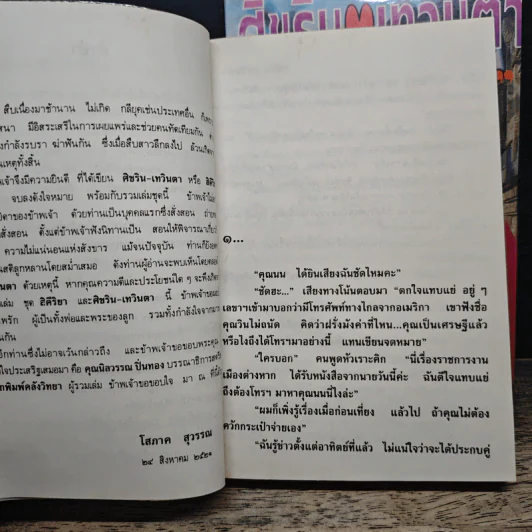 สืบเนื่องมาช้านาน ไม่เกิด กลียุคเช่นประเทศอื่น
มีอิสระเสรีในการเผยแพร่และช่วยคนทัดเทียมกัน
กำลังรบรา ฆ่าพันกัน ซึ่งเมื่อสืบสาวลึกลงไป
เหตุทั้งสิ้น
เจ้าจึงมีความยินดี ที่ได้เขียน ศิขริน-เทวินตา หรือ
จบลงดังใจหมาย พร้อมกับรวมเล่มชุดนี้
ของข้าพเจ้า ด้วยท่านเป็นบุคคลแรกซึ่งสั่งสอน
ตั้งแต่ข้าพเจ้าฟังนิทานเป็น สอนให้พิจารณา
ความไม่แน่นอนแห่งสังขาร แม้จนปัจจุบัน
ลูกหลานโดยสม่ำเสมอ ดังท่านผู้อ่านจะพบเห็นโดย
ด้วยเหตุนี้ หากคุณความดีและประโยชน์ใด ๆ จะพึงเกิด
ชุด อิสิริยา และศิขริน-เทวินตา นี้ ข้าพเจ้าขอ
ผู้เป็นทั้งพ่อและพระของลูก รวมทั้งกำลังใจจาก
กัน
อีกท่านซึ่งไม่อาจเว้นกล่าวถึง และข้าพเจ้าขอขอบพระคุณ
ใจประเสริฐเสมอมา คือ คุณนิลวรรณ ปิ่นทอง บรรณาธิการ
พิมพ์คลังวิทยา ผู้รวมเล่ม ข้าพเจ้าขอขอบใจ มา ณ ที่นี้
โสภาค สุวรรณ
๒๔ สิงหาคม ๒๕๒๑
๑...
"คุณนน ได้ยินเสียงฉันชัดไหมคะ"
"ชัดฮะ..." เสียงทางโน้นตอบมา "ตกใจแทบแย่ อยู่ ๆ
เลขาฯเข้ามาบอกว่ามีโทรศัพท์ทางไกลจากอเมริกา เขาฟังชื่อ
คุณวินไม่ถนัด คิดว่าฝรั่งมังค่าที่ไหน...คุณเป็นเศรษฐีแล้ว
หรือไงถึงได้โทรฯมาอย่างนี้ แทนเขียนจดหมาย"
"ใครบอก" คนพูดหัวเราะคิก "นี่เรื่องราชการงาน
เมืองต่างหาก ได้รับหนังสือจากนายวันนี้ค่ะ ฉันดีใจแทบแย่
ถึงต้องโทรฯ มาหาคุณนนนี่ไงล่ะ"
"ผมก็เพิ่งรู้เรื่องเมื่อก่อนเที่ยง แล้วไป ถ้าคุณไม่ต้อง
ควักกระเป๋าจ่ายเอง"
"ฉันรู้ข่าวตั้งแต่อาทิตย์ที่แล้ว ไม่แน่ใจว่าจะได้ประกบคู่